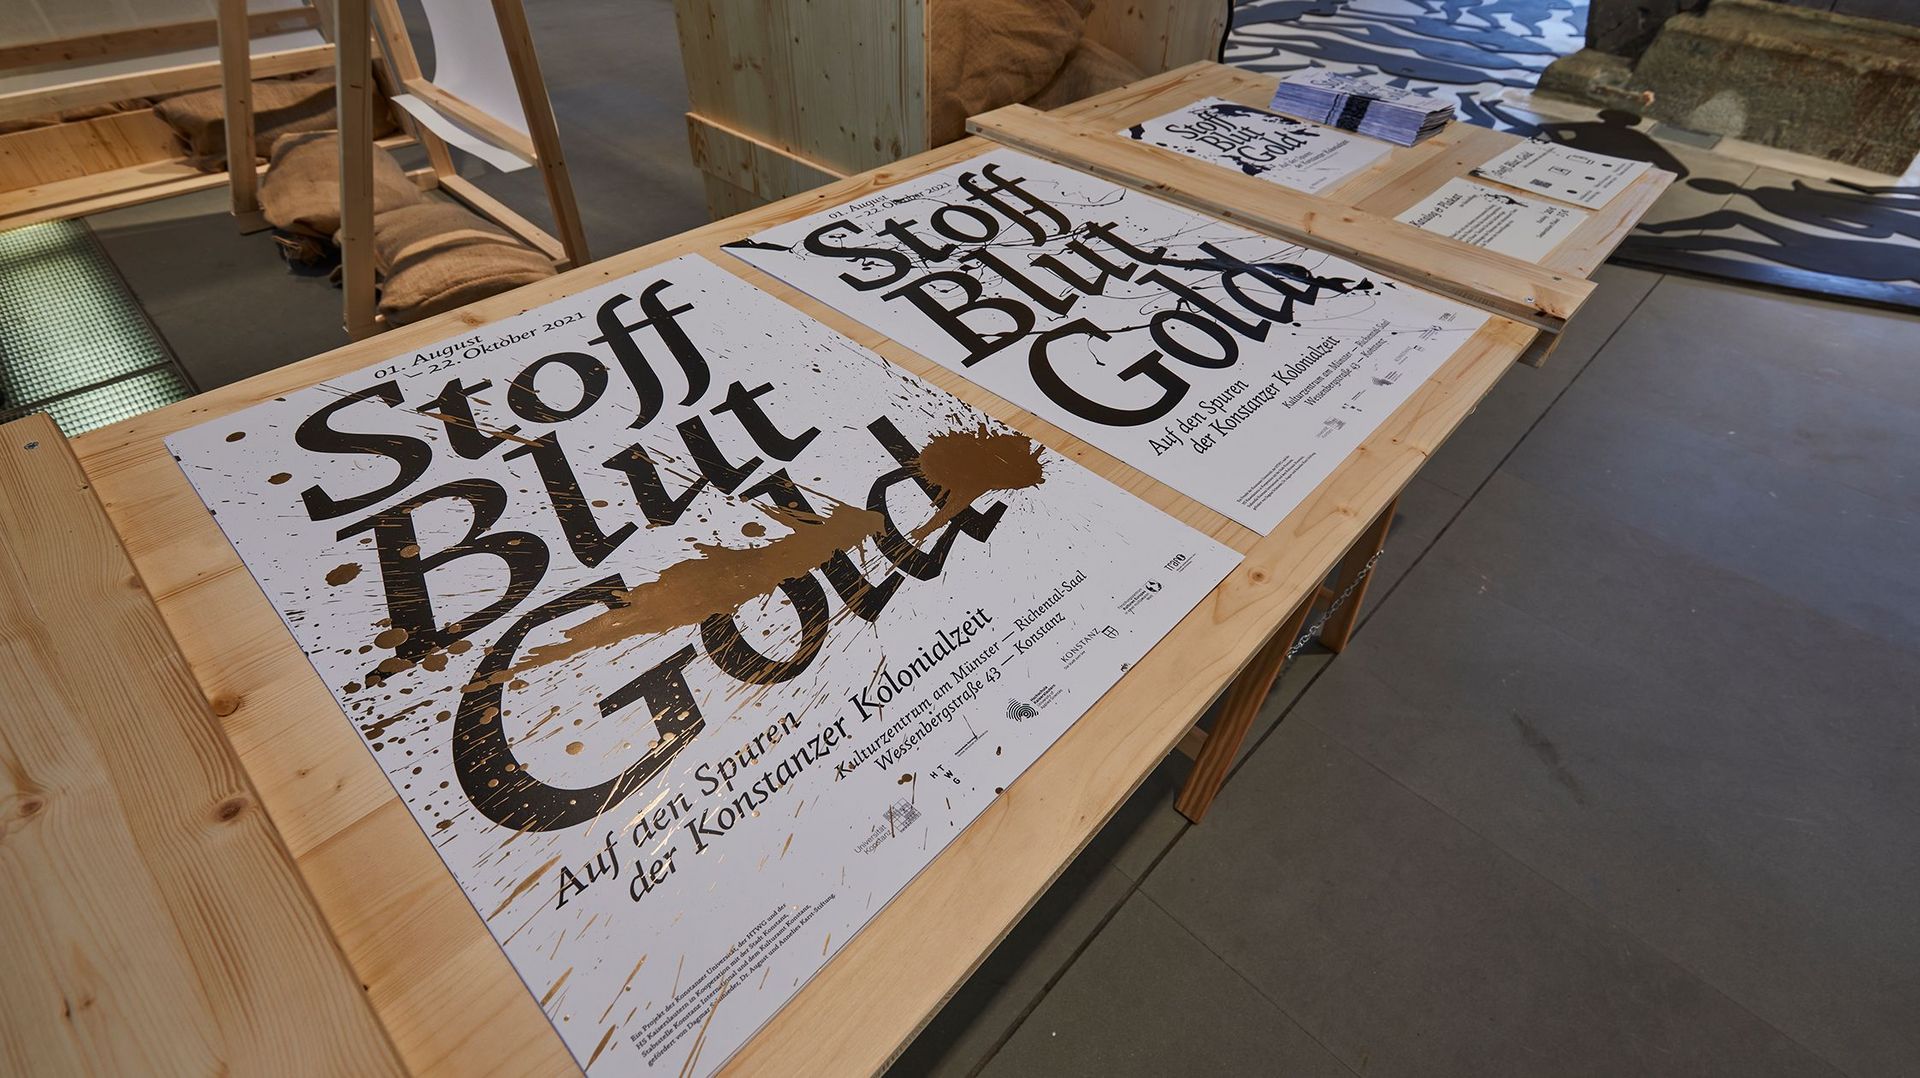 01. August
– 22. Oktober 2021
Stoff
Blut
Gold
Auf den Spuren
der Konstanzer Kolonialzeit
Kulturzentrum am Münster — Richental-Saal
Wessenbergstraße 43 — Konstanz
Universität
Konstanz
H T
W
G
KONSTANZ
Ein Projekt der Konstanzer Universität, der HTWG und der
HS Kaiserslautern in Kooperation mit der Stadt Konstanz,
Stabsstelle Konstanz International und dem Kulturamt Konstanz,
gefördert von Dagmar Schmieder, Dr. August und Annelies Karst-Stiftung
01. August
– 22. Oktober 2021
Stoff
Blut
Gold
Auf den Spuren
der Konstanzer Kolonialzeit
Kulturzentrum am Münster — Richental-Saal
Wessenbergstraße 43 — Konstanz
Stoff
Blut
Gold
Auf den Spuren
der Konstanzer Kolonialzeit
Katalog & Plakat
Stoff Blut Gold